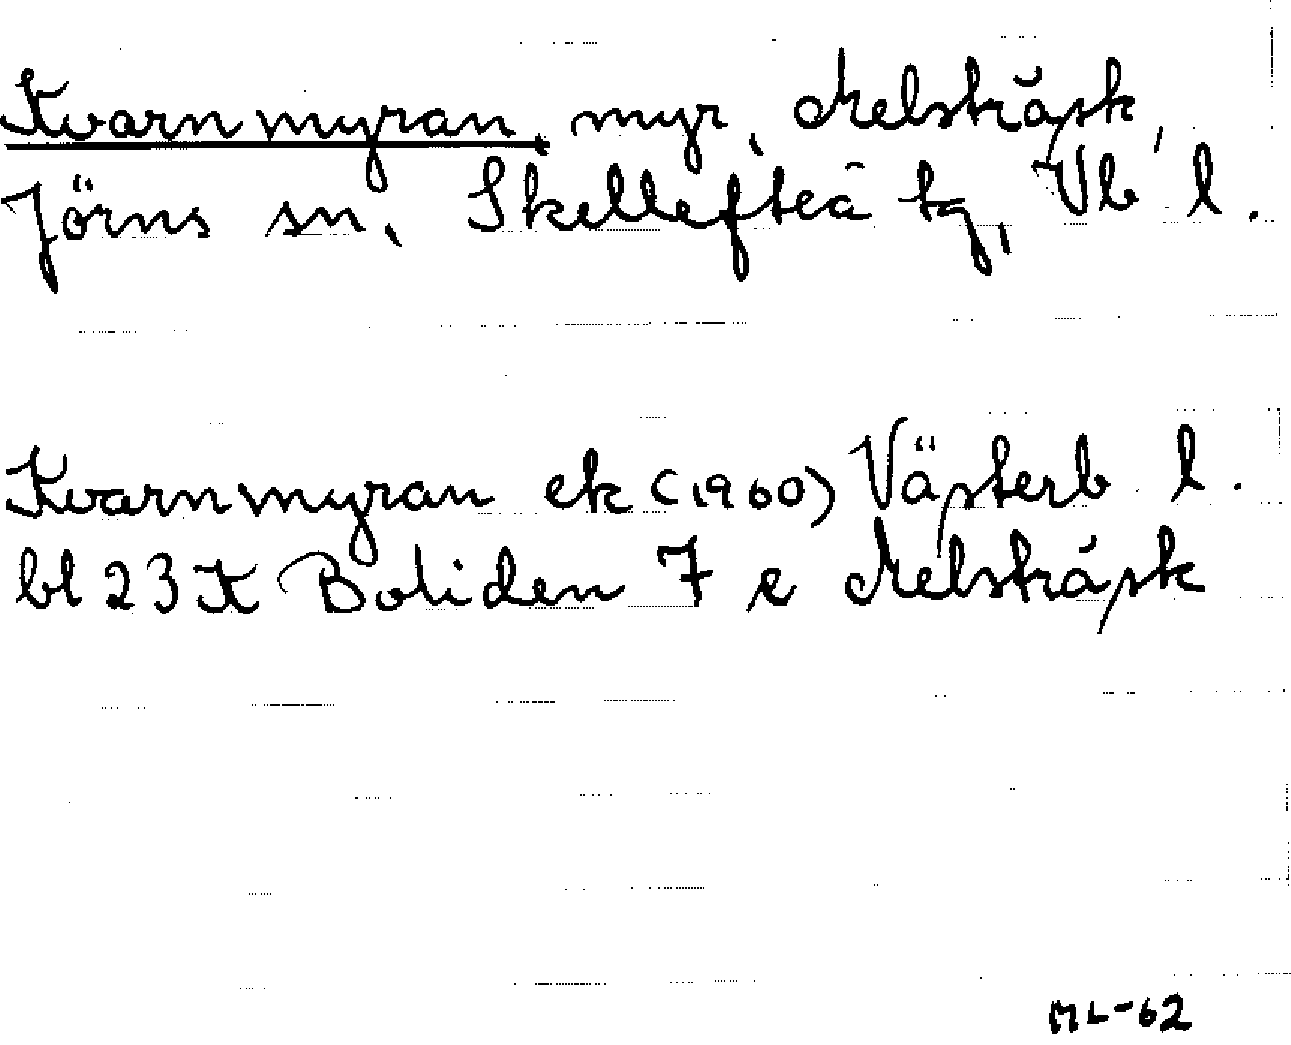 Kvarnmyran, myr, Melsträsk,
Jörns sn, Skellefteå tg, Vb l.
Kvarnmyran ek (1960) Västerb l.
bl 23 K Boliden 7 e Melsträsk
ML-62